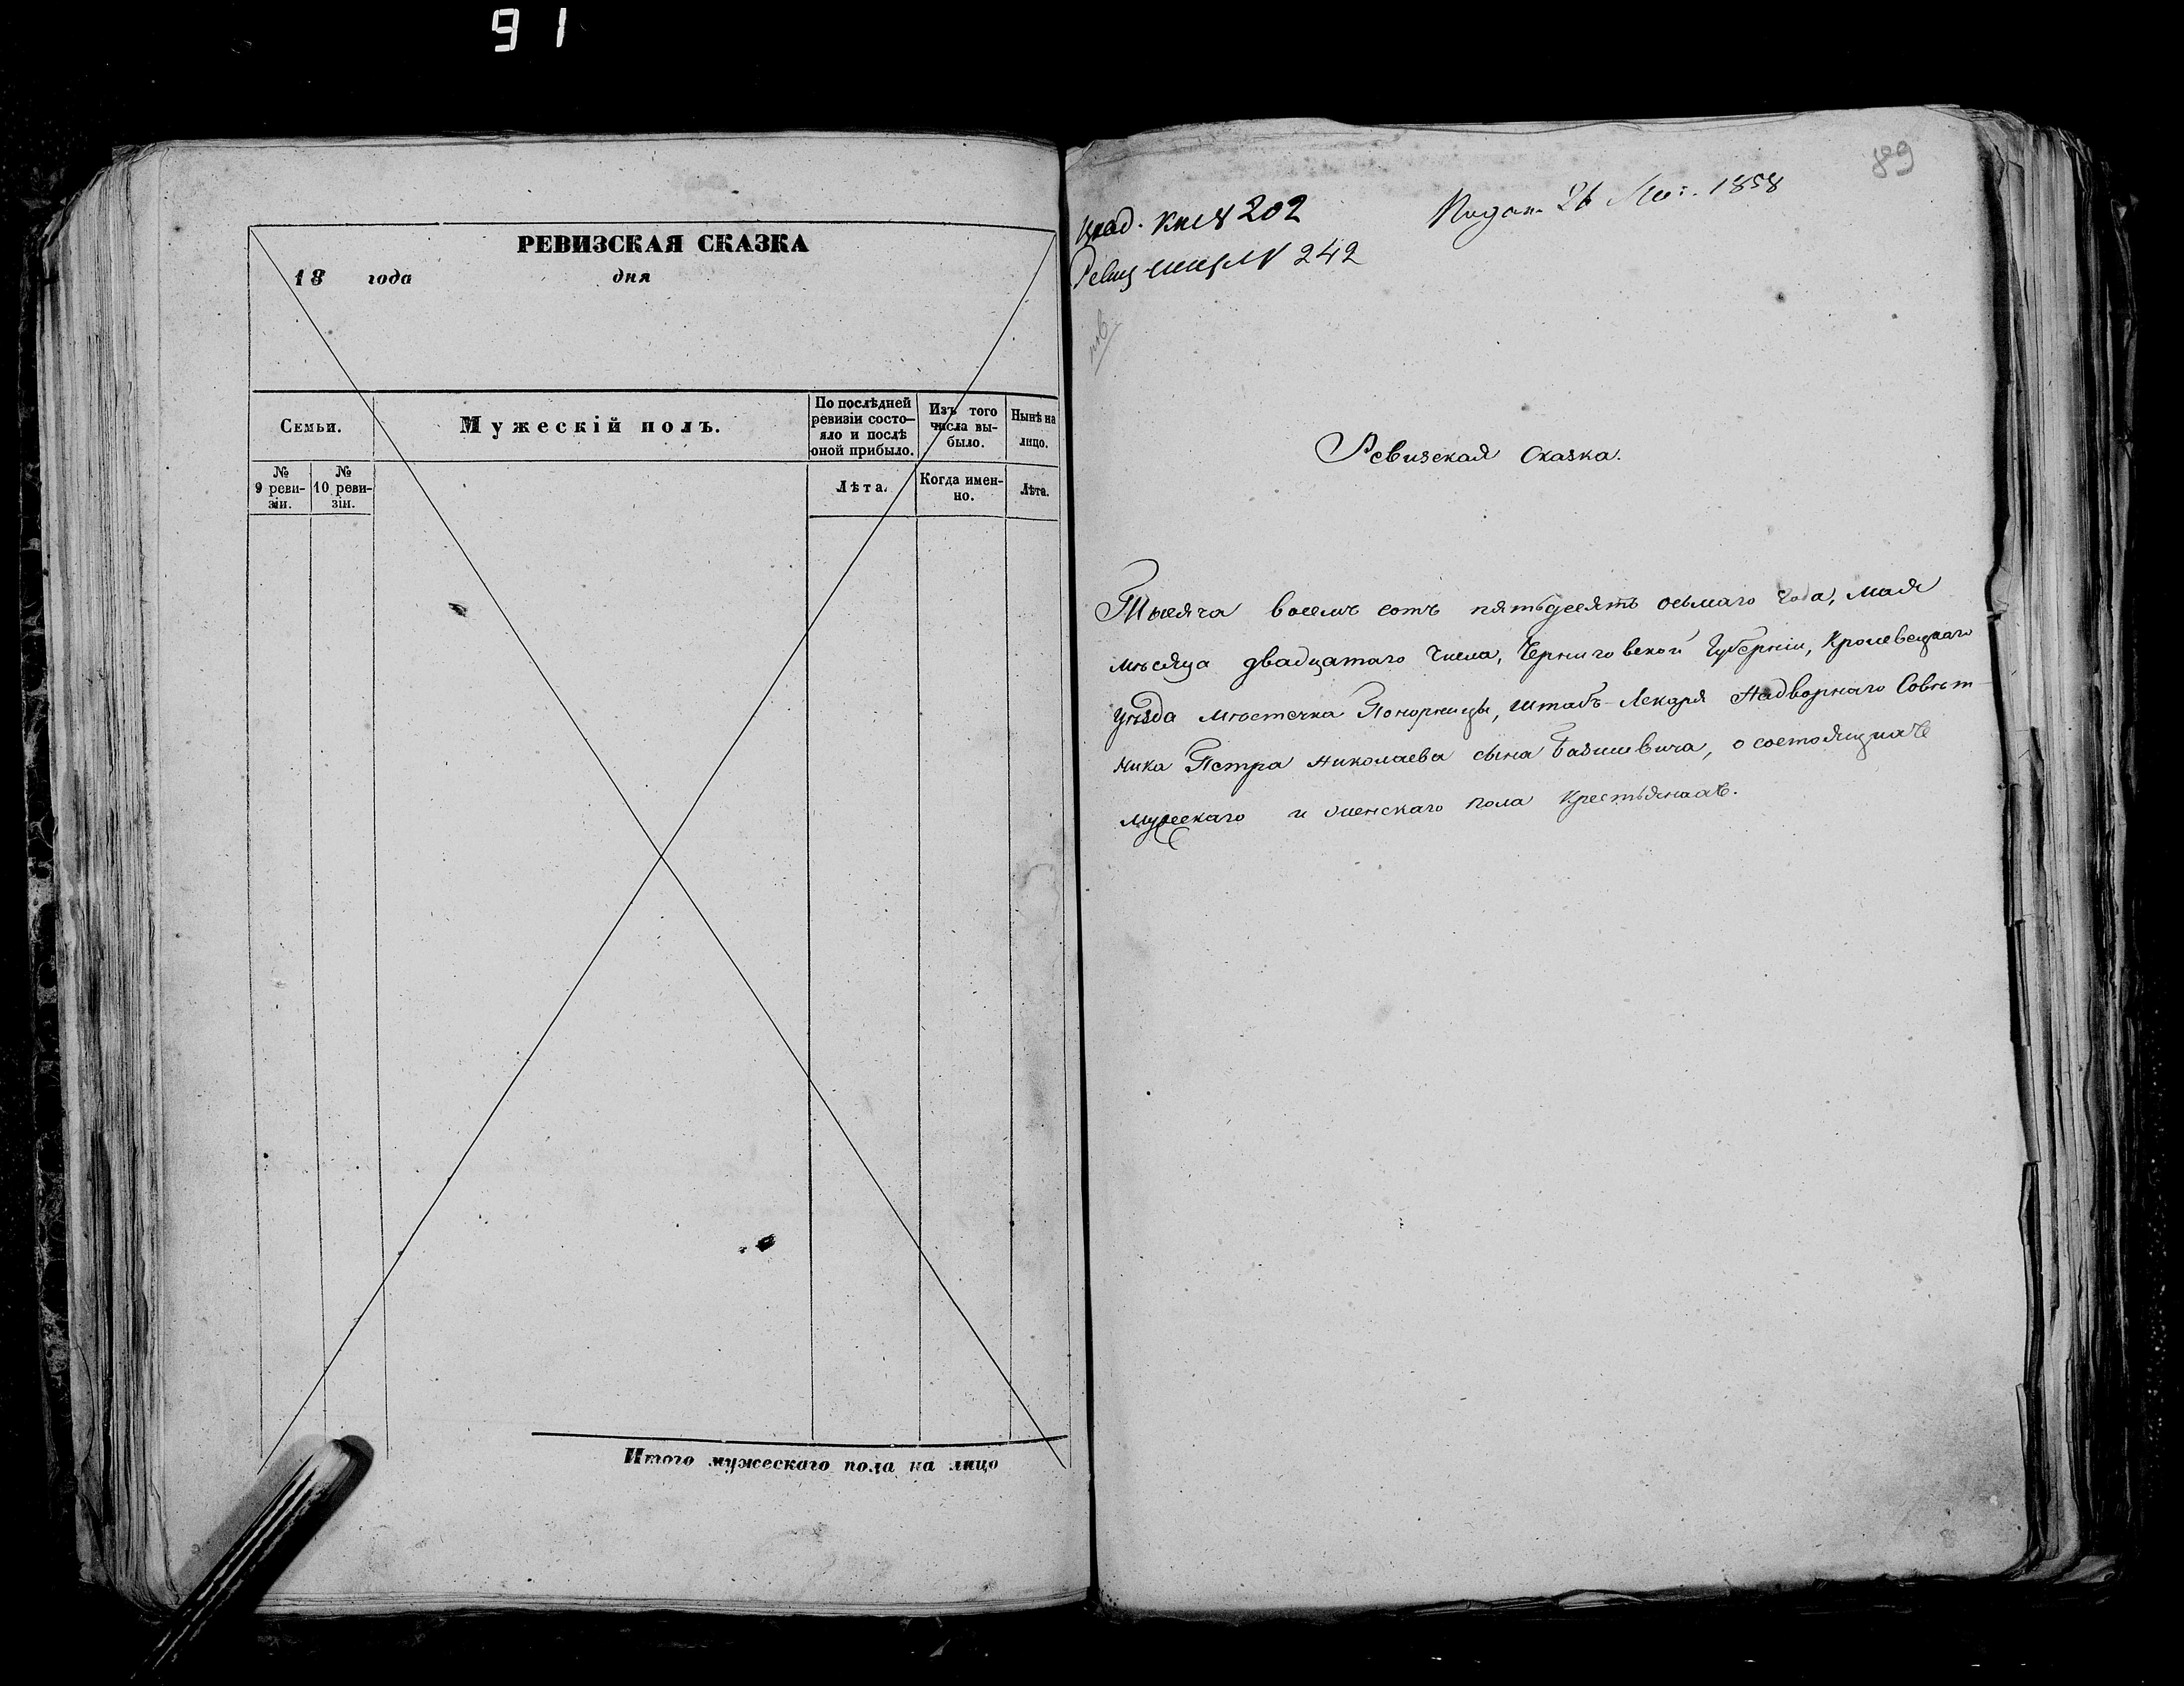 91
РЕВИЗСКАЯ СКАЗКА
18 года дня
Семьи.
Мужескій полъ.
По послѣдней ревизіи состо-
яло и послѣ
оной прибыло.
Изъ того
числа вы-
было.
Нынѣ на
лицо.
№
9 реви-
зіи.
№
10 реви-
зіи.
Лѣта.
Когда имен-
но.
Лѣта.
Итого мужескаго пола на лицо
89
202
242
Подан. 26 1858
Ревизская Сказка.
Тысяча восемъ сотъ пятьдесятъ осьмаго года, мая
мѣсяца двадцатаго числа, Черниговской Губерніи, Кролевецкаго
уѣзда мѣстечка Понорницы, Штабъ-Лекаря Надворнаго Совѣт-
ника Петра Николаева сына Базилевича, о состоящихъ
мужескаго и женскаго пола Крестьянахъ.